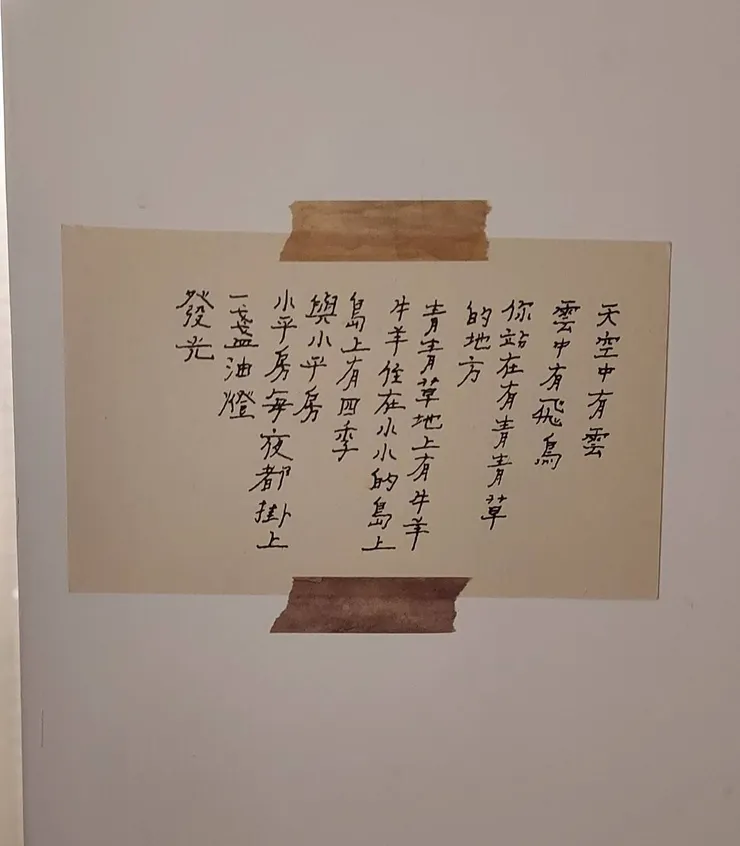 天空中有雲
雲中有飛鳥
你站在有青青草
的地方
青青草地上有牛羊
牛羊住在小小的島上
島上有四季
與小平房
小平房每夜都掛上
一盞油燈
發光